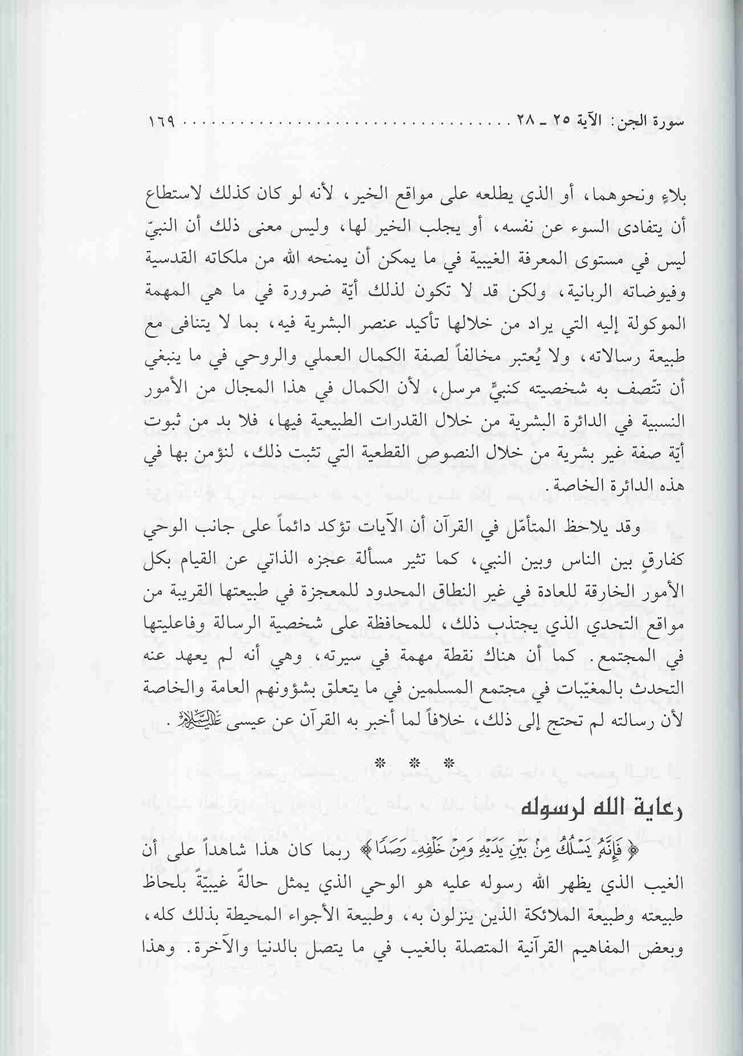 سورة الجن: الآية ٢٥ - ٢٨ ................................... ١٦٩
بلاءٍ ونحوهما، أو الذي يطلعه على مواقع الخير، لأنه لو كان كذلك لاستطاع
أن يتفادى السوء عن نفسه، أو يجلب الخير لها، وليس معنى ذلك أن النبيّ
ليس في مستوى المعرفة الغيبية في ما يمكن أن يمنحه الله من ملكاته القدسية
وفيوضاته الربانية، ولكن قد لا تكون لذلك أيّة ضرورة في ما هي المهمة
الموكولة إليه التي يراد من خلالها تأكيد عنصر البشرية فيه، بما لا يتنافى مع
طبيعة رسالاته، ولا يُعتبر مخالفاً لصفة الكمال العملي والروحي في ما ينبغي
أن تتّصف به شخصيته كنبيٍّ مرسل، لأن الكمال في هذا المجال من الأمور
النسبية في الدائرة البشرية من خلال القدرات الطبيعية فيها، فلا بد من ثبوت
أيّة صفة غير بشرية من خلال النصوص القطعية التي تثبت ذلك، لنؤمن بها في
هذه الدائرة الخاصة.
وقد يلاحظ المتأمّل في القرآن أن الآيات تؤكد دائماً على جانب الوحي
كفارقٍ بين الناس وبين النبي، كما تثير مسألة عجزه الذاتي عن القيام بكل
الأمور الخارقة للعادة في غير النطاق المحدود للمعجزة في طبيعتها القريبة من
مواقع التحدي الذي يجتذب ذلك، للمحافظة على شخصية الرسالة وفاعليتها
في المجتمع. كما أن هناك نقطة مهمة في سيرته، وهي أنه لم يعهد عنه
التحدث بالمغيّبات في مجتمع المسلمين في ما يتعلق بشؤونهم العامة والخاصة
لأن رسالته لم تحتج إلى ذلك، خلافاً لما أخبر به القرآن عن عيسى عليه السلام.
* * *
رعاية الله لرسوله
﴿فَإِنَّهُ يَسْلُكُ مِنْ بَيْنِ يَدَيْهِ وَمِنْ خَلْفِهِ رَصَدًا﴾ ربما كان هذا شاهداً على أن
الغيب الذي يظهر الله رسوله عليه هو الوحي الذي يمثل حالةً غيبيّةً بلحاظ
طبيعته وطبيعة الملائكة الذين ينزلون به، وطبيعة الأجواء المحيطة بذلك كله،
وبعض المفاهيم القرآنية المتصلة بالغيب في ما يتصل بالدنيا والآخرة. وهذا